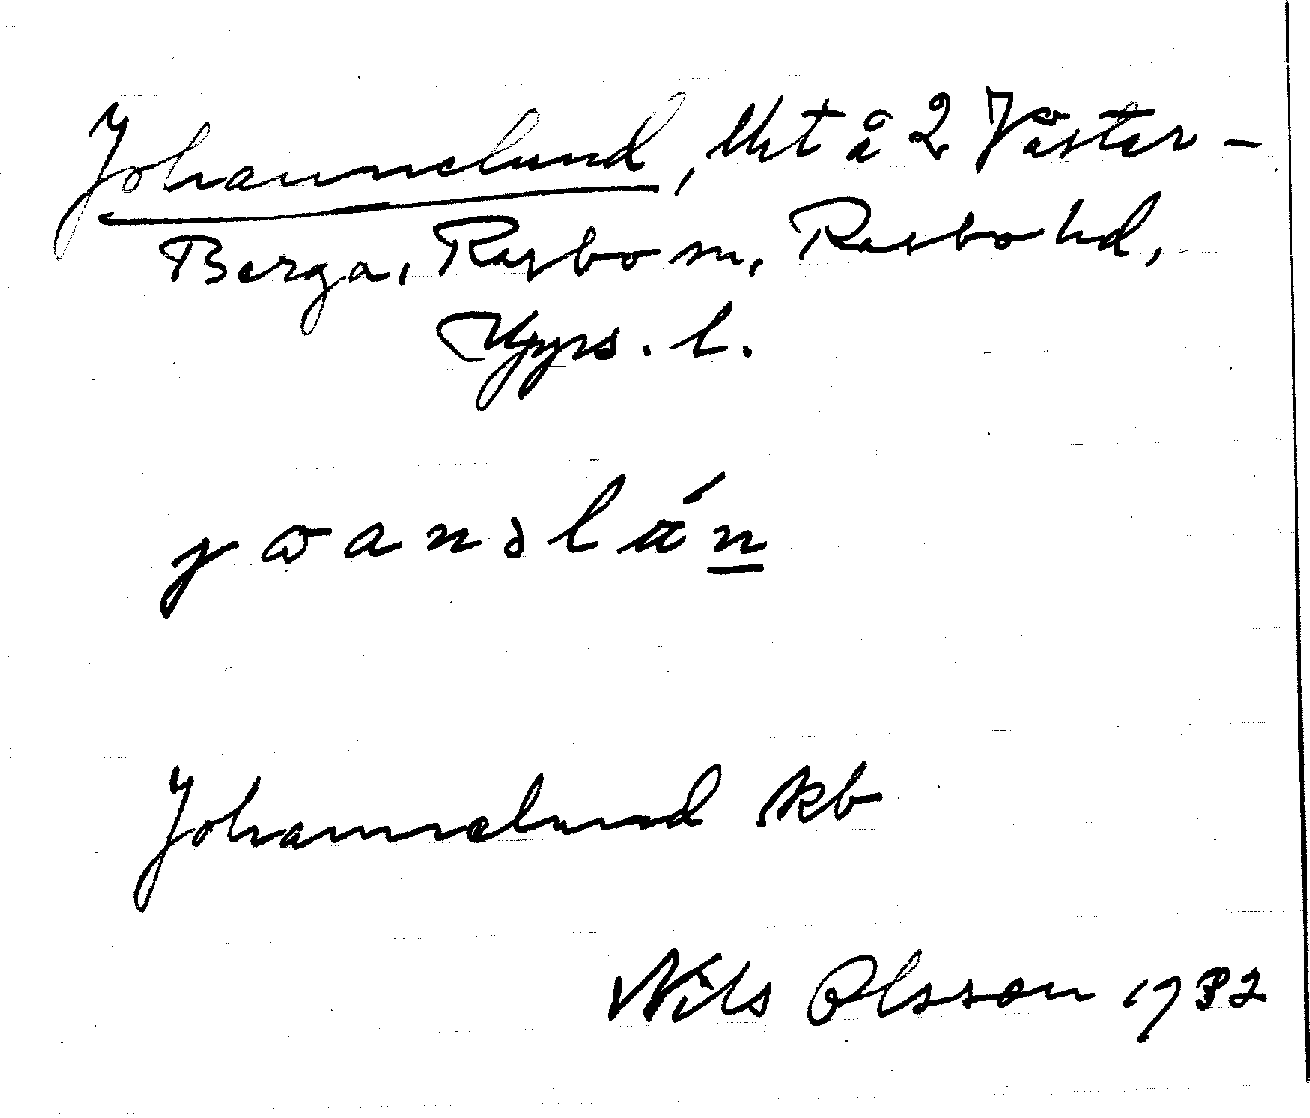 Johannelund, tht å 2 Väster-
Berga, Rasbo sn, Rasbo hd,
Upps. l.
jωanəlán
Johannelund skb
Nils Olsson 1932